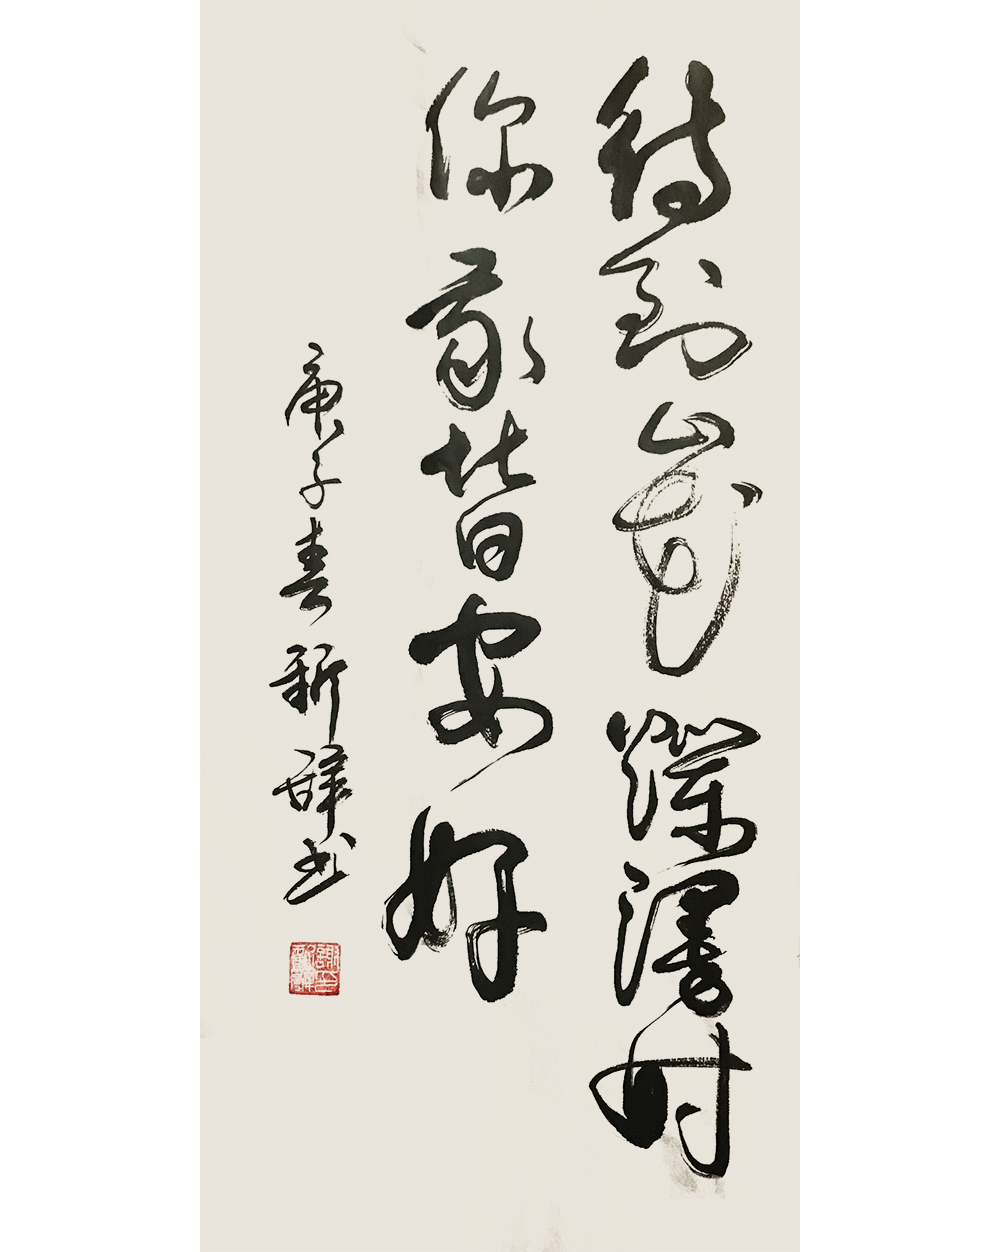 待到山花烂漫时
你我皆安好
庚子春新辞书